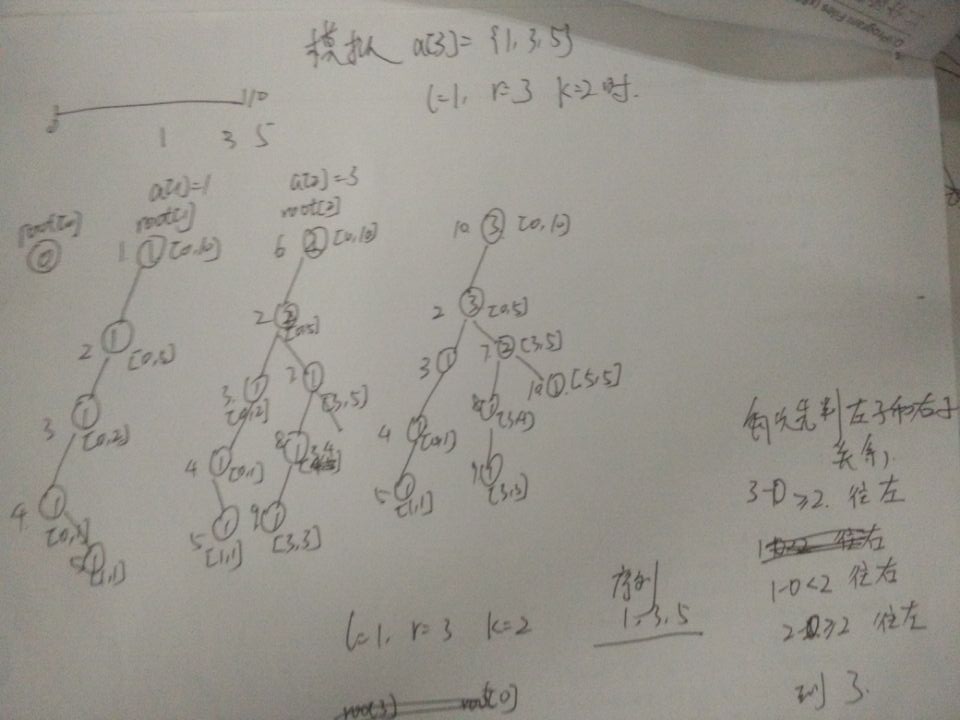 模拟 a[3]= {1,3,5}
l=1, r=3 k=2时.
0 10
1 3 5
a[1]=1 a[2]=3
root[0] root[1] root[2]
0 1 ① [0,10] 6 ② [0,10] 10 ③ [0,10]
2 ① [0,5] 2 ② [0,5] 2 ③ [0,5]
3 ① [0,2] 3 ① [0,2] 7 ① [3,5] 3 ① 7 ② [3,5]
10 ① [5,5]
4 ① 4 ① [0,1] 8 ① 4 ① [0,1] 8 ① [3,4]
5 ① [1,1] 5 ① [1,1] 9 ① [3,3] 5 ① [1,1] 9 ① [3,3]
每次先判左子和右子
关系,
3-0≥2. 往左
1-0<2 往右
2-0≥2 往左
到 3.
序列
1, 3, 5
l=1, r=3 k=2
root[3] root[0]